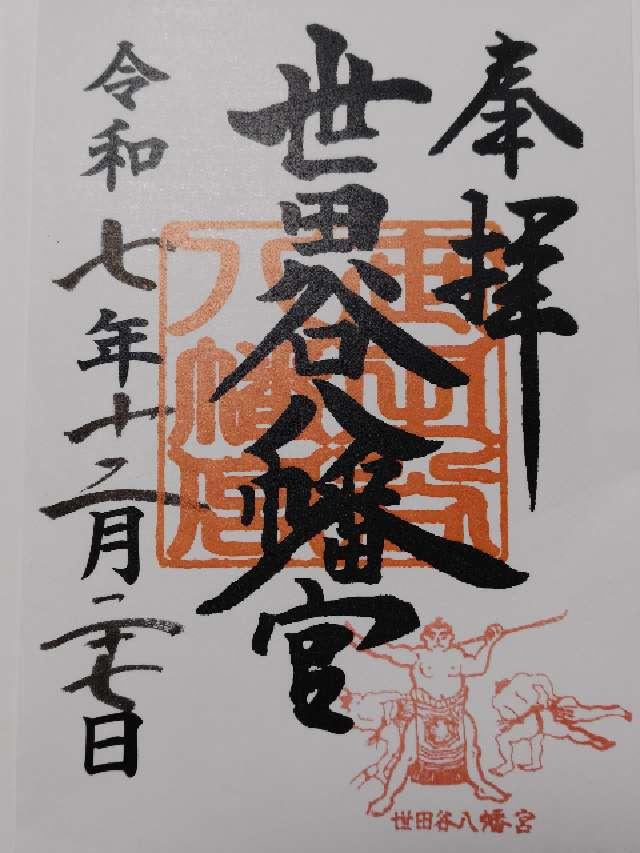 奉拝
世田谷八幡宮
世田谷八幡宮
令和七年十二月二十七日
世田谷八幡宮